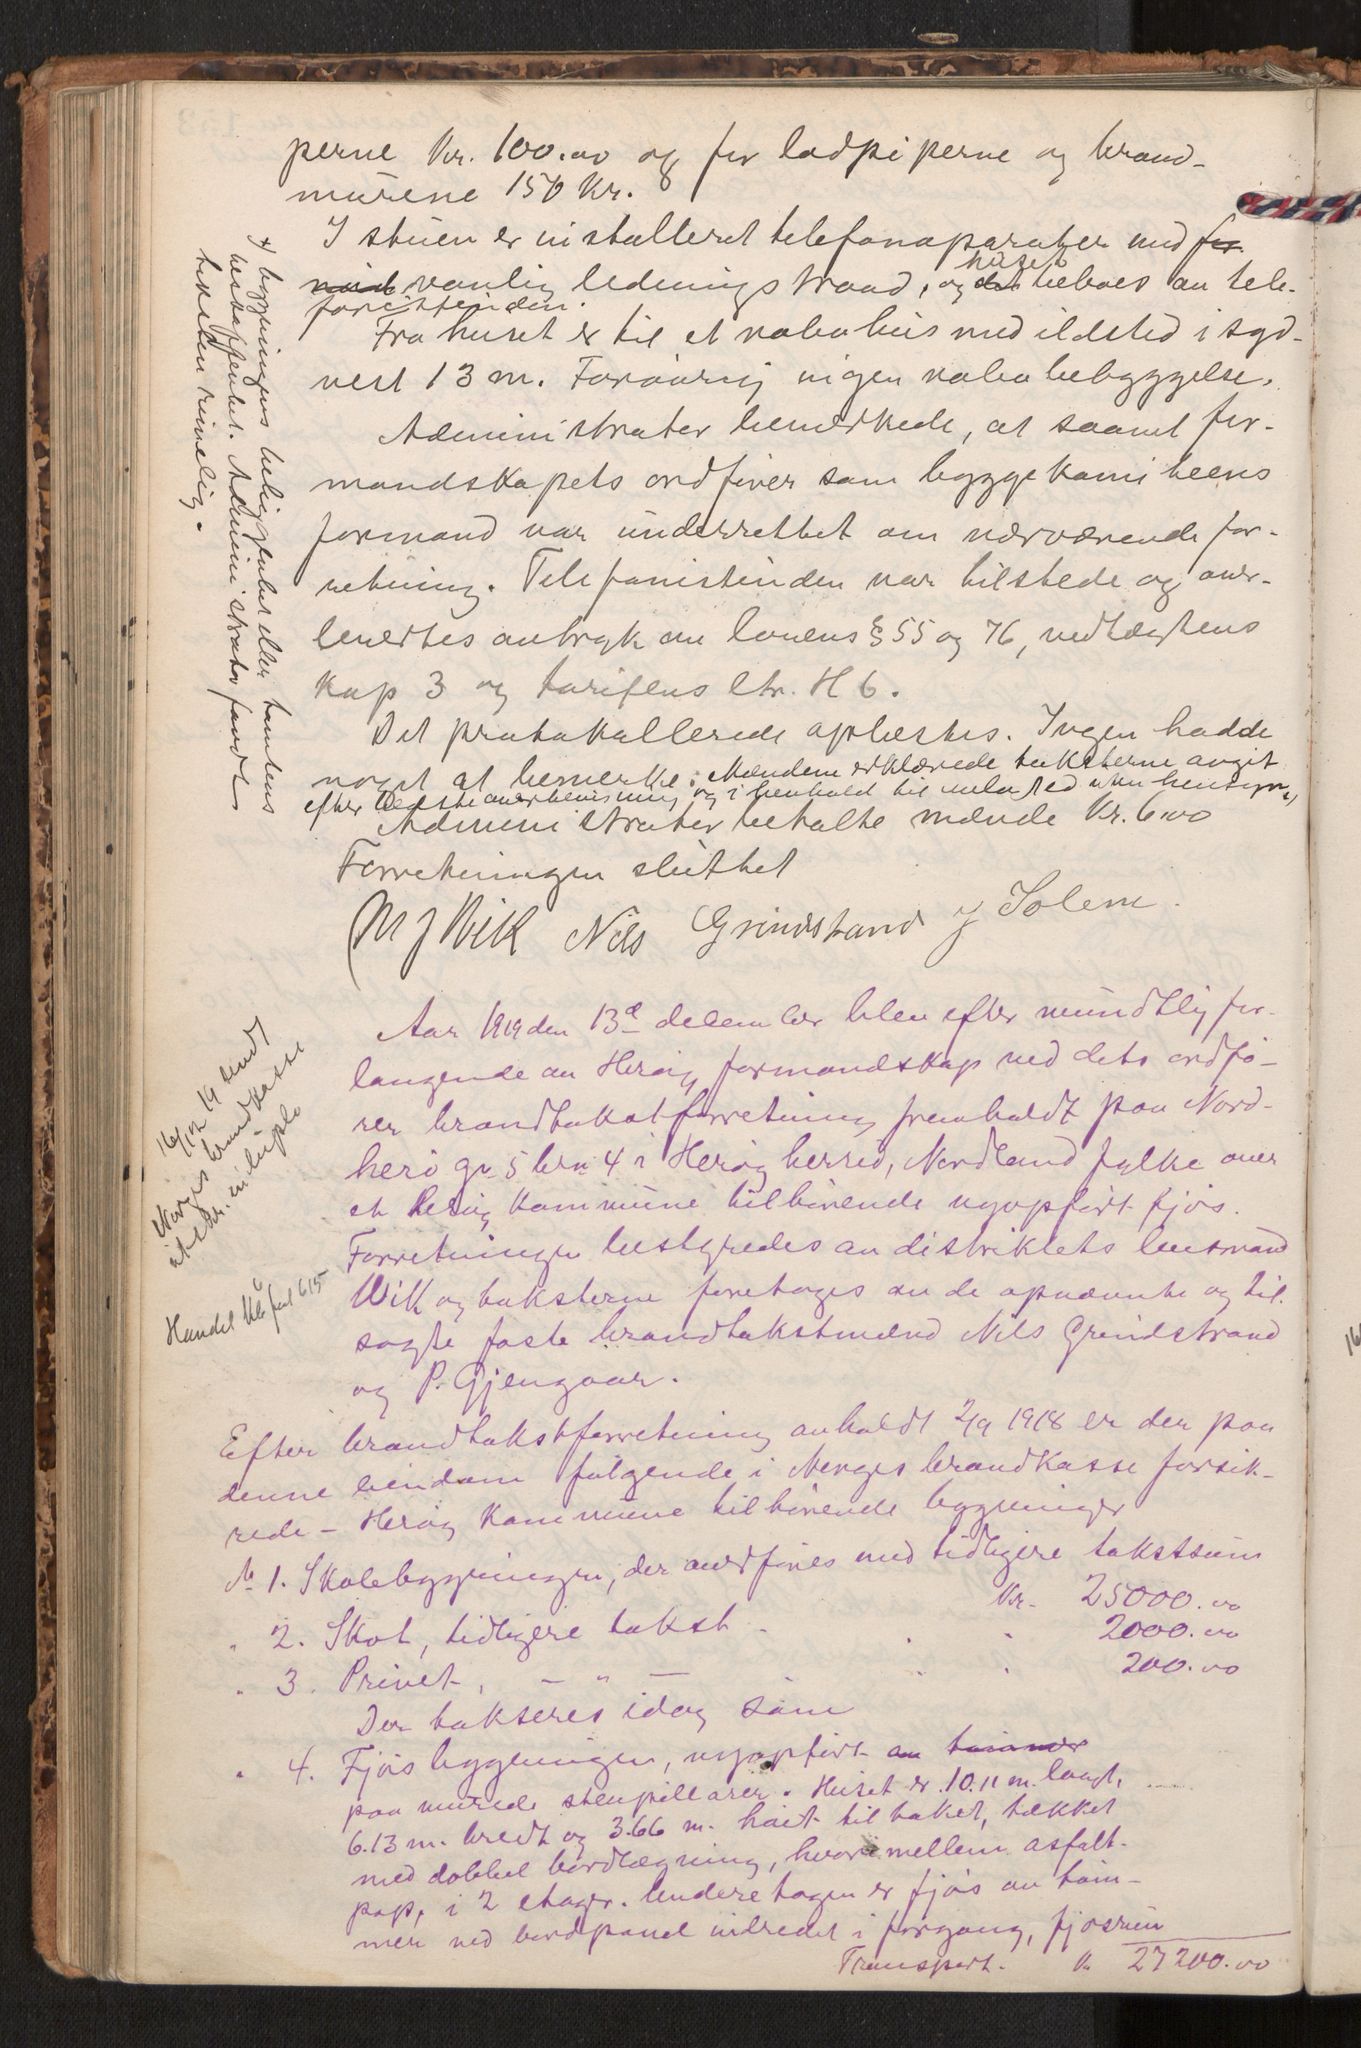 perne Kr. 100.00 og for lodpiperne og brand-
murene 150 Kr.
I stuen er installeret telefonaparater med for
med vanlig ledningstraad, og det huset beboes av tele-
fonistinden.
Fra huset er til et nabohus med ildsted i syd-
vest 13 m. Forøvrig ingen nabobebyggelse.
Administrator bemerkede, at saavel for-
mandskapets ordfører som byggekomiteens
formand var underrettet om nærværende for-
retning. Telefonistinden var tilstede og over-
leverdtes avtryk av lovens § 55 og 76, vedtægtens
kap 3 og tarifens ltr. H 6.
Det protokollerede oplæstes. Ingen hadde
noget at bemerke. Mændene erklærede taksterne avgit
efter bedste overbevisning og i henhold til uten hensyn
Administrator betalte mænde Kr. 6.00
Forretningen sluttet
M J Wik Nils Grindstrand J Solem.
x) bygningens beliggenhet eller tomtens
beskaffenhet. Administrator fandt
taksten rimelig.
Aar 1919 den 13de december blev efter mundtlig for-
langende av Herøy formandskap ved dets ordfø-
rer brandtakstforretning fremholdt paa Nord-
herø gr 5 brn 4 i Herøy herred, Nordland fylke over
et Herøy kommune tilhørende nyopført fjøs.
Forretningen bestyredes av distriktets lensmand
Wik og taksterne foretoges av de opnævnte og til-
sagte faste brandtakstmænd Nils Grindstrand
og P. Gjengaar.
16/12 19 sendt
Norges brandkasse
utskr. in duplo
Handel Kl 6 fol 615
Efter brandtakstforretning avholdt 2/9 1918 er der paa
denne eiendom følgende i Norges brandkasse forsik-
rede - Herøy kommune tilhørende bygninger
№ 1. Skolebygningen, der anføres med tidligere takstsum
Kr. 25000.00
" 2. Skot, tidligere takst - " " 2000.00
" 3. Privet, - " - " " 200.00
Der takseres idag som
" 4. Fjøsbygningen, nyopført av tømmer
paa murede stenpillarer. Huset er 10.11 m. langt,
6.13 m. bredt og 3.66 m. høit til taket, tækket
med dobbel bordlægning, hvorimellem asfalt-
pap, i 2 etager. Underetagen er fjøs av tøm-
mer med bordpanel indredet i forgang, fjøsrum
Transport. Kr 27200.00